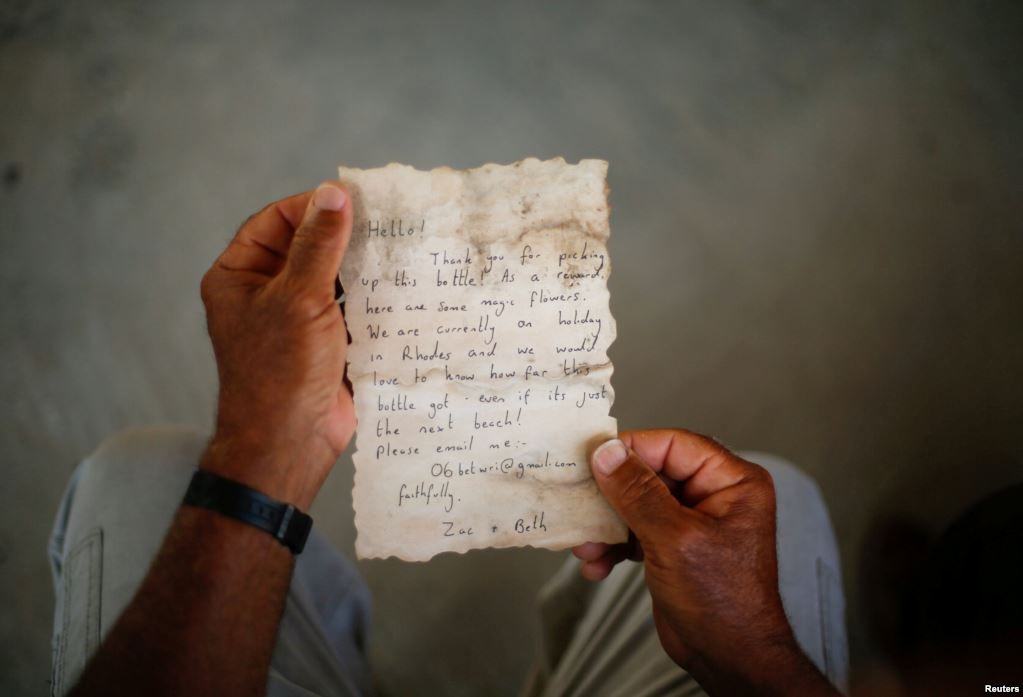 Hello!
Thank you for picking
up this bottle! As a reward,
here are some magic flowers.
We are currently on holiday
in Rhodes and we would
love to know how far this
bottle got - even if its just
the next beach!
Please email me:-
06betwri@gmail.com
faithfully.
Zac + Beth
Reuters